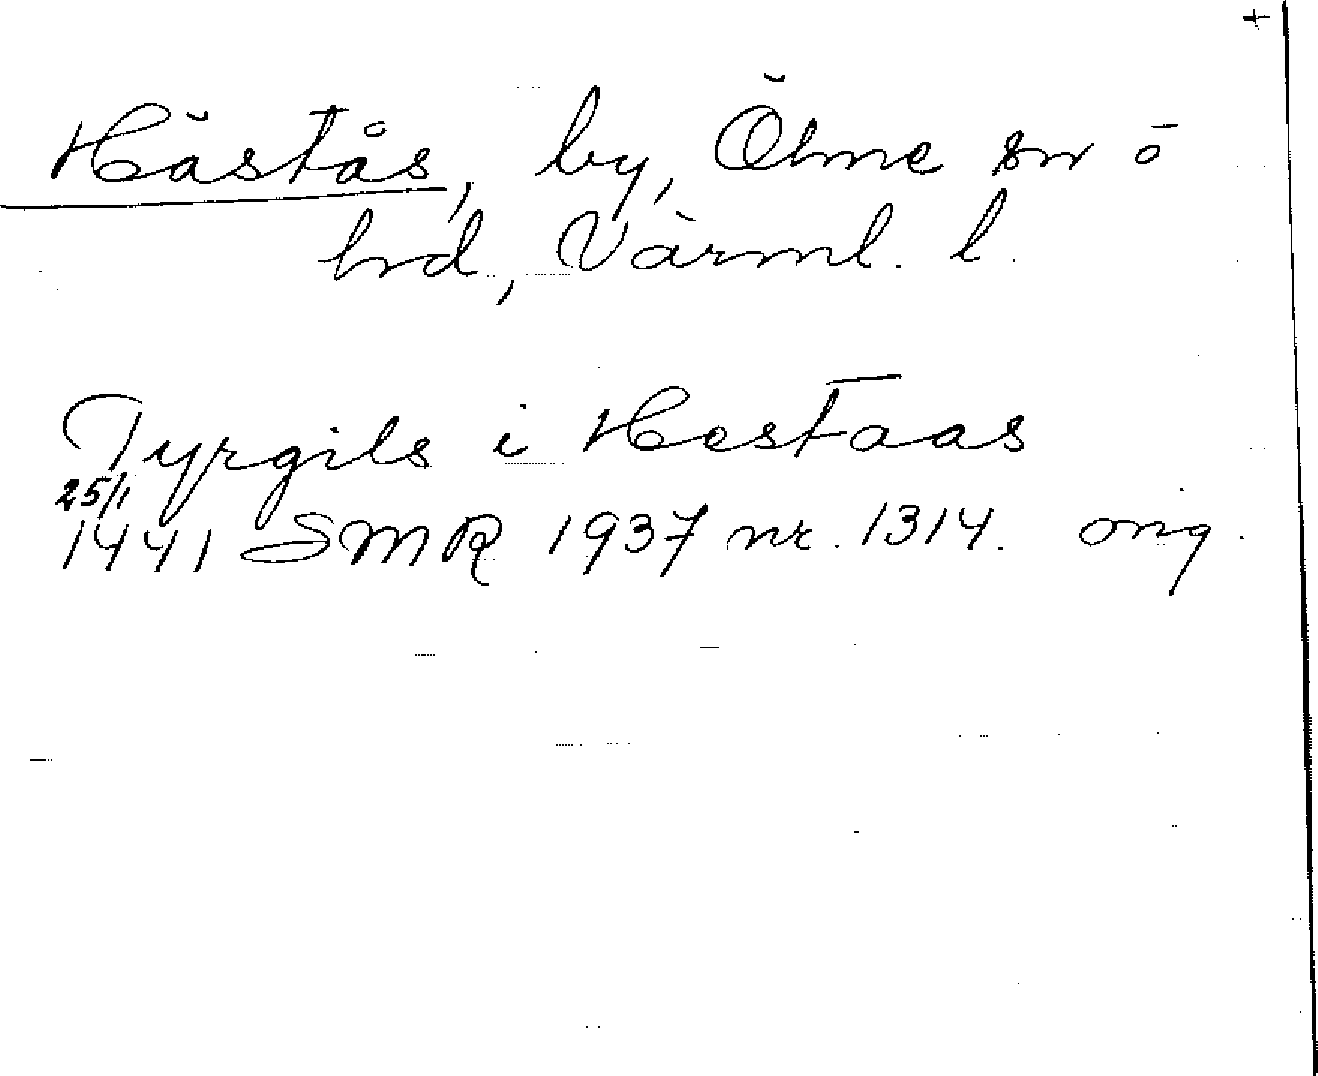 +
Hästås, by, Ölme sn ō
hrd, Värml. l.
Tyrgils i Hestaas
25/1
1441 SMR 1937 nr. 1314. orig.